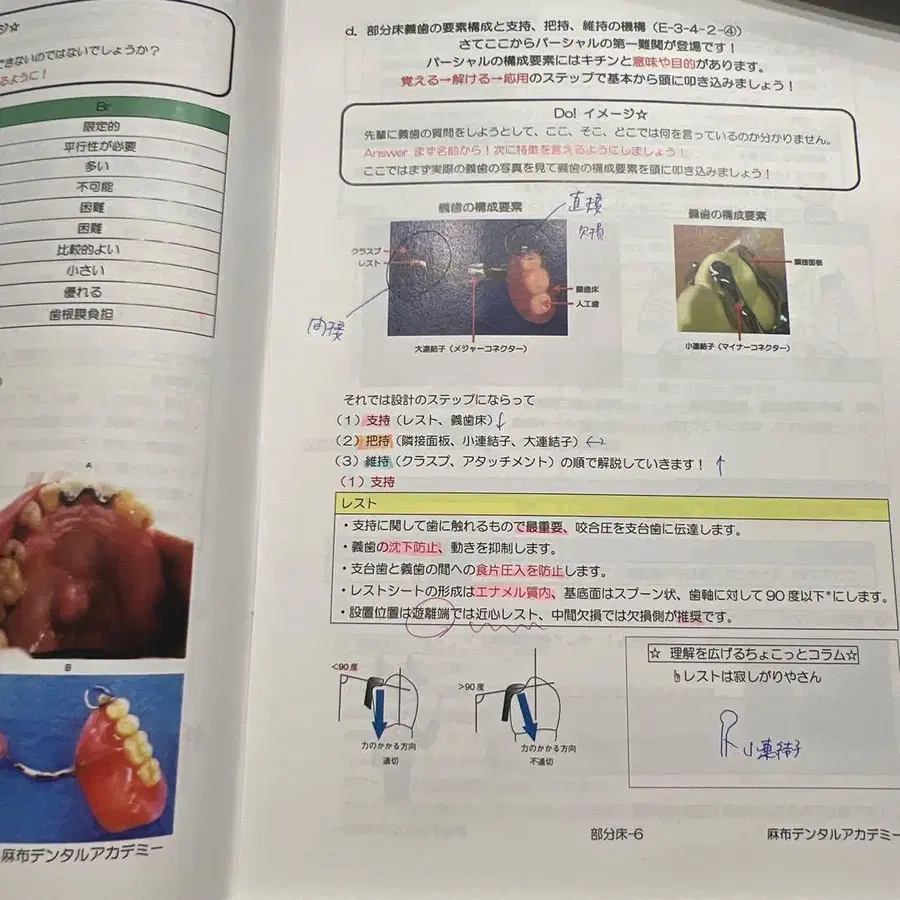 ジ☆
できないのではないでしょうか？
るように！
Br
限定的
平行性が必要
多い
不可能
困難
困難
比較的よい
小さい
優れる
歯根膜負担
A
B
麻布デンタルアカデミー
d. 部分床義歯の要素構成と支持、把持、維持の機構（E-3-4-2-④）
さてここからパーシャルの第一難関が登場です！
パーシャルの構成要素にはキチンと意味や目的があります。
覚える→解ける→応用のステップで基本から頭に叩き込みましょう！
Do! イメージ☆
先輩に義歯の質問をしようとして、ここ、そこ、どこでは何を言っているのか分かりません。
Answer まず名前から！次に特徴を言えるようにしましょう！
ここではまず実際の義歯の写真を見て義歯の構成要素を頭に叩き込みましょう！
義歯の構成要素
直接
欠損
クラスプ
レスト
義歯床
人工歯
間接
大連結子（メジャーコネクター）
義歯の構成要素
隣接面板
小連結子（マイナーコネクター）
それでは設計のステップにならって
（1）支持（レスト、義歯床）↓
（2）把持（隣接面板、小連結子、大連結子）↔
（3）維持（クラスプ、アタッチメント）の順で解説していきます！ ↑
（1）支持
レスト
・支持に関して歯に触れるもので最重要、咬合圧を支台歯に伝達します。
・義歯の沈下防止、動きを抑制します。
・支台歯と義歯の間への食片圧入を防止します。
・レストシートの形成はエナメル質内、基底面はスプーン状、歯軸に対して90度以下*にします。
・設置位置は遊離端では近心レスト、中間欠損では欠損側が推奨です。
<90度
力のかかる方向
適切
>90度
力のかかる方向
不適切
☆ 理解を広げるちょこっとコラム☆
レストは寂しがりやさん
小連結子
部分床-6
麻布デンタルアカデミー